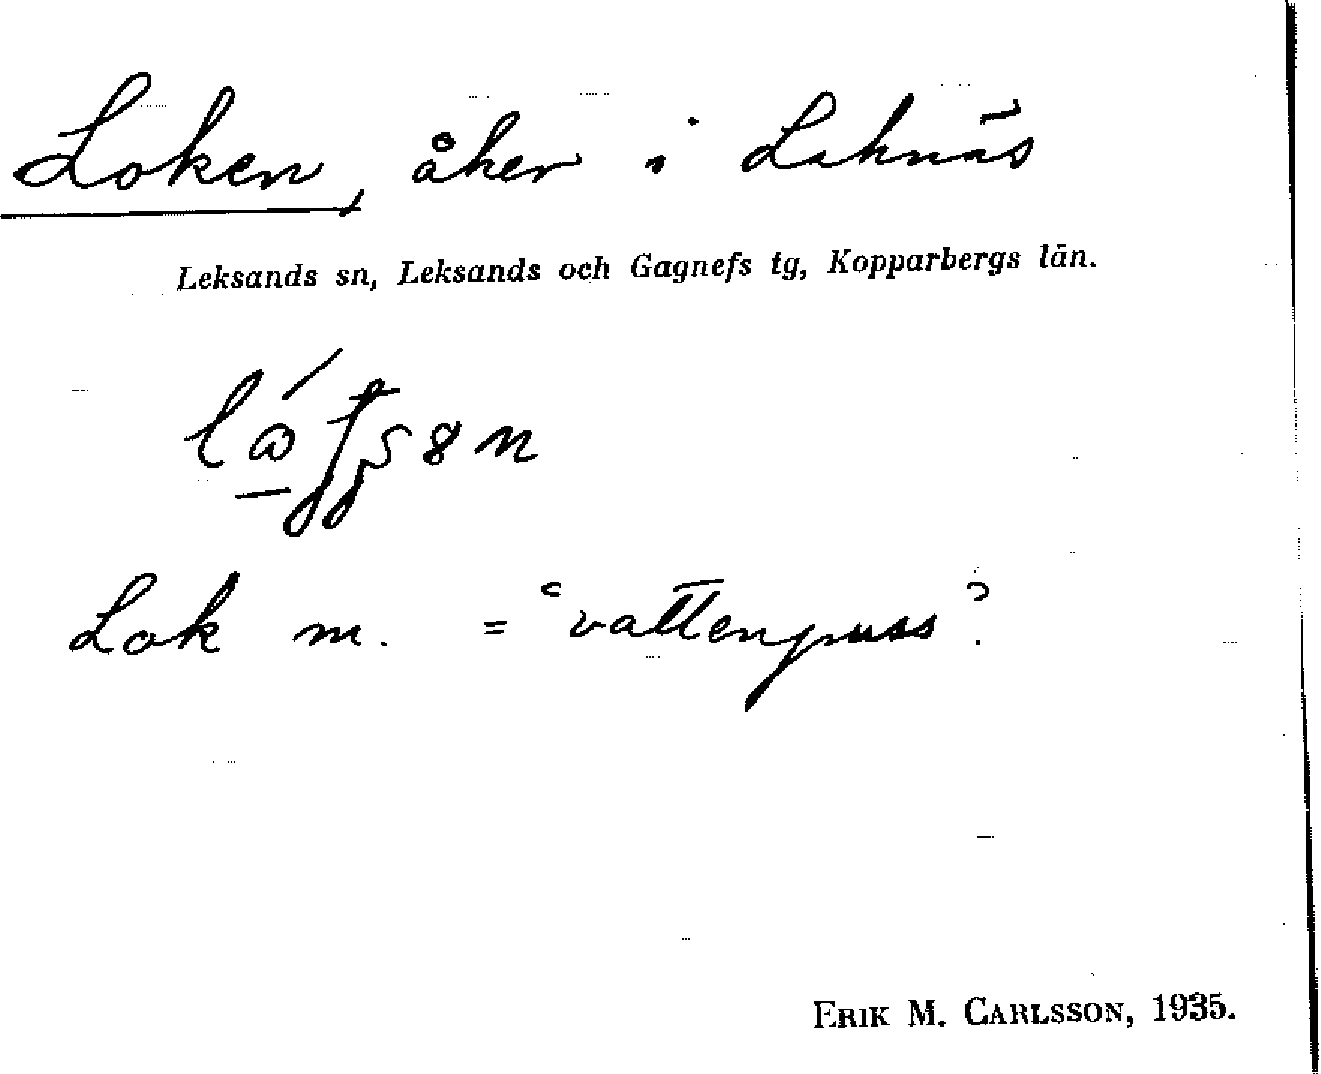 Loken, åker i Laknäs
Leksands sn, Leksands och Gagnefs tg, Kopparbergs län.
Lok m. = ‘vattenpuss’.
ERIK M. CARLSSON, 1935.